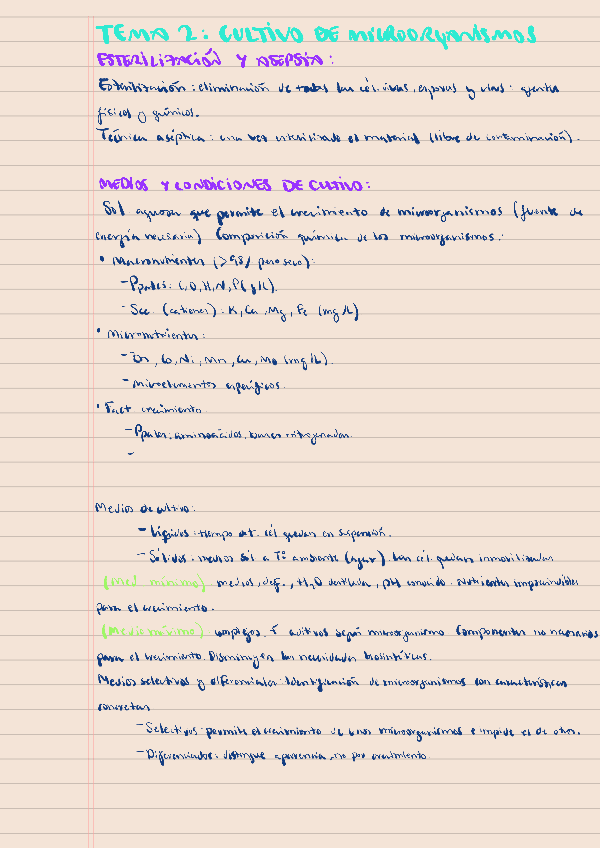 TEMA 2: CULTIVO DE MICROORGANISMOS
ESTERILIZACIÓN Y ASEPSIA:
Esterilización: eliminación de todas las cél. vivas, esporas y virus: agentes
físicos y químicos.
Técnica aséptica: una vez esterilizado el material (libre de contaminación).
MEDIOS Y CONDICIONES DE CULTIVO:
Sol acuosa que permite el crecimiento de microorganismos (fuente de
energía necesaria) Composición química de los microorganismos:
• Macronutrientes (>95% peso seco):
- Ppales: C, O, H, N, P (g/L).
- Sec. (cationes): K, Ca, Mg, Fe (mg/L)
• Micronutrientes:
- Zn, Co, Ni, Mn, Cu, Mo (mg/L).
- Microelementos específicos.
• Fact crecimiento
- Ppales: aminoácidos, bases nitrogenadas.
-
Medios de cultivo:
- Líquidos: tiempo cél. quedan en suspensión.
- Sólidos: medios sól a Tº ambiente (agar). Las cél. quedan inmovilizadas
(Med mínimo) medios, def., H2O destilada, pH conocido. Nutrientes imprescindibles
para el crecimiento.
(Medio máximo) complejos. + aditivos según microorganismo Componentes no necesarios
para el crecimiento. Disminuyen las necesidades biosintéticas.
Medios selectivos y diferenciales: Identificación de microorganismos con características
concretas
- Selectivos: permite el crecimiento de unos microorganismos e impide el de otros.
- Diferenciados: distingue apariencia, no por crecimiento.